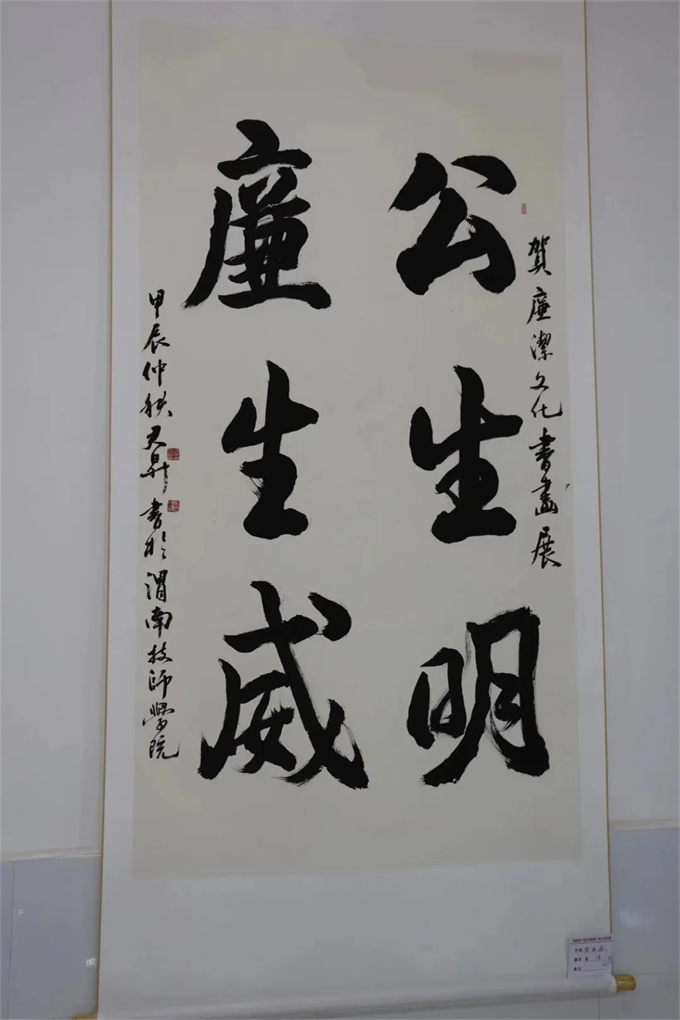 賀廉潔文化書畫展
公生明
廉生威
甲辰仲秋天昇書於渭南技師學院